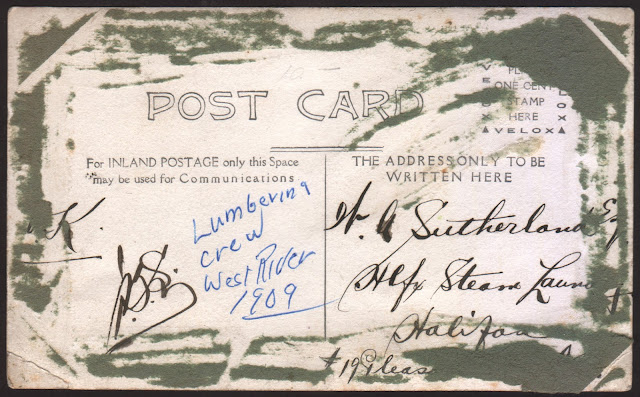 POST CARD
ONE CENT
STAMP
HERE
VELOX
For INLAND POSTAGE only this Space
may be used for Communications
THE ADDRESS ONLY TO BE
WRITTEN HERE
K.
Lumbering
crew
West River
1909
Sutherland
Hlfx Steam
Halifax